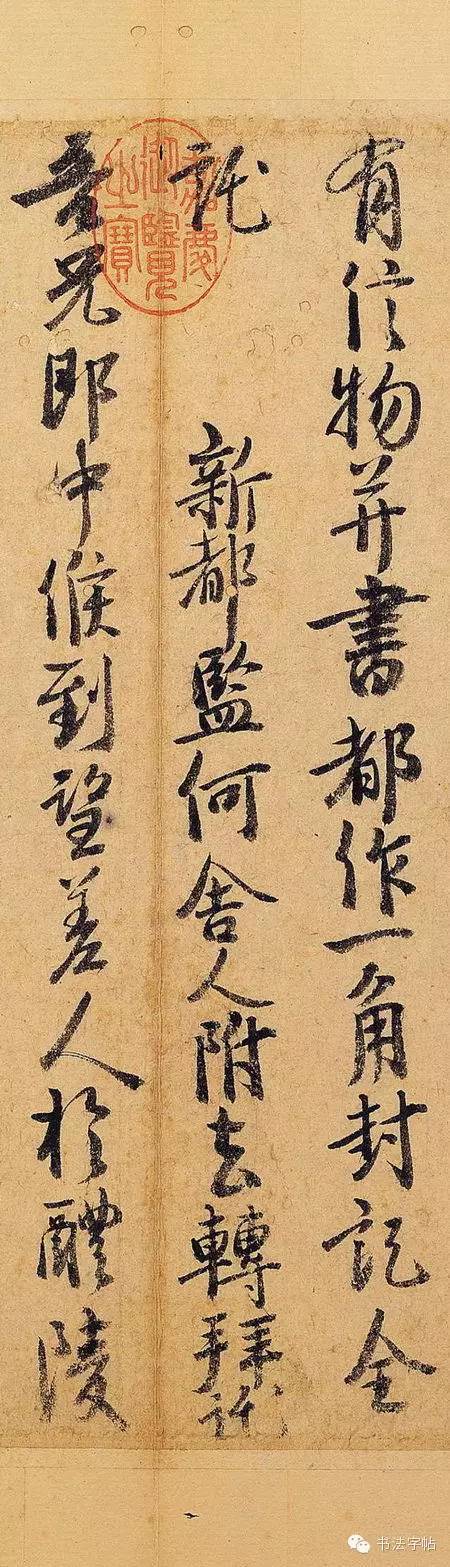 有信物并書都作一角封訖全
託 新都監何舍人附去轉拜託
吾兄郎中候到望差人於醴陵
嘉慶御覽之寶
书法字帖